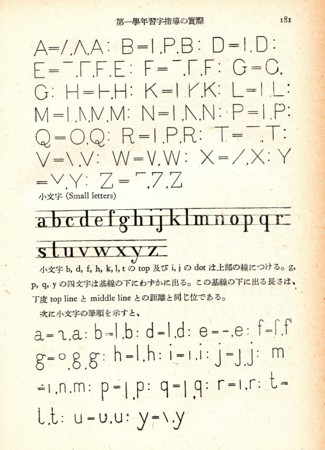 第一學年習字指導の實際 181
A=/.Λ.A: B=l.P.B: D=l.D:
E=‾.Γ.F.E: F=‾.Γ.F: G=C.
G: H=Ⱶ.H: K=l.K: L=l.L:
M=l.M: N=l.Λ.N: P=l.P:
Q=O.Q: R=l.P.R: T=‾.T:
V=\.V: W=V.W: X=/.X: Y
=Y: Z=‾.7.Z
小文字 (Small letters)
abcdefghijklmnopqr
stuvwxyz
小文字 b, d, f, h, k, l, t の top 及び i, j の dot は上部の線につける。g,
p, q, y の四文字は基線の下にわずかに出る。この基線の下に出る長さは、
丁度 top line と middle line との距離と同じ位である。
次に小文字の筆順を示すと、
a=a: b=l.b: d=l.d: e=-.e: f=ſ.f
g=o.g: h=l.h: i=ı.i: j=j: m
=ı.n.m: p=l.p: q=q: r=ı.r: t=
l.t: u=υ.u: y=\.y